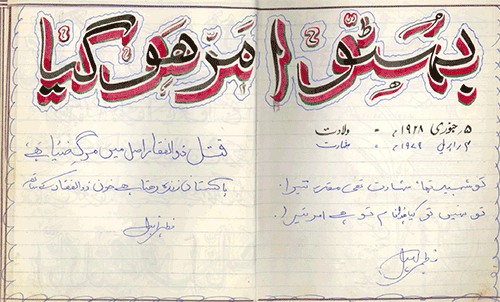 بھٹو امر ہو گیا
۵ جنوری ۱۹۲۸ء = ولادت
۴ اپریل ۱۹۷۹ء = شہادت
تو شہید تھا، شہادت تھی مقدر تیرا۔
تو نہیں تو کیا ہوا نام تو ہے امر تیرا۔
قتل ذوالفقار اصل میں مرگ ضیا ہے
پاکستان زندہ رہتا ہے خون ذوالفقار کے ساتھ